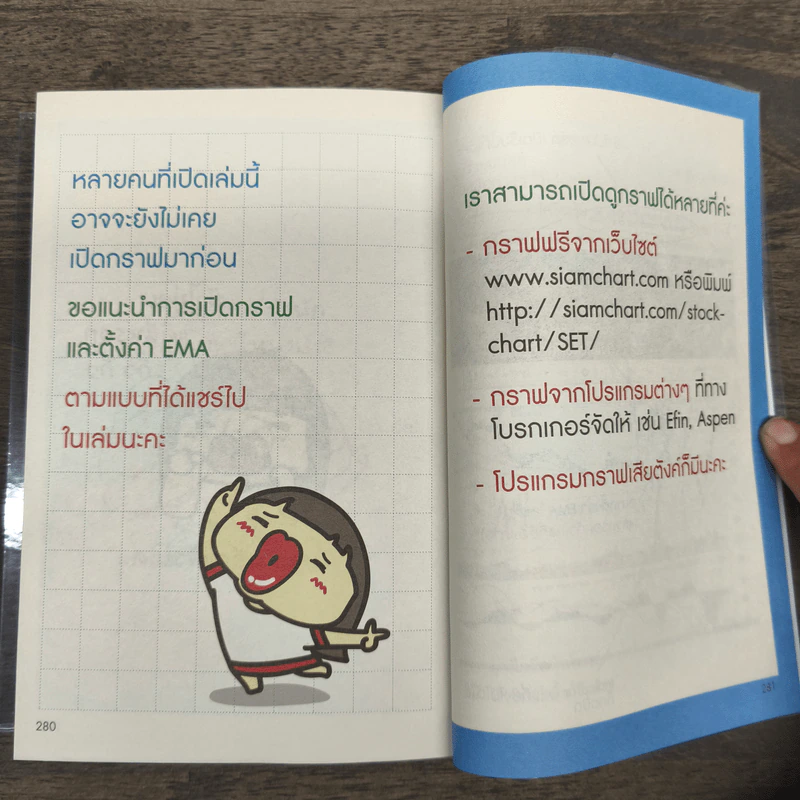 หลายคนที่เปิดเล่มนี้
อาจจะยังไม่เคย
เปิดกราฟมาก่อน
ขอแนะนำการเปิดกราฟ
และตั้งค่า EMA
ตามแบบที่ได้แชร์ไป
ในเล่มนะคะ
280
เราสามารถเปิดดูกราฟได้หลายที่ค่ะ
- กราฟฟรีจากเว็บไซต์
www.siamchart.com หรือพิมพ์
http://siamchart.com/stock-
chart/SET/
- กราฟจากโปรแกรมต่างๆ ที่ทาง
โบรกเกอร์จัดให้ เช่น Efin, Aspen
- โปรแกรมกราฟเสียตังค์ก็มีนะคะ
281